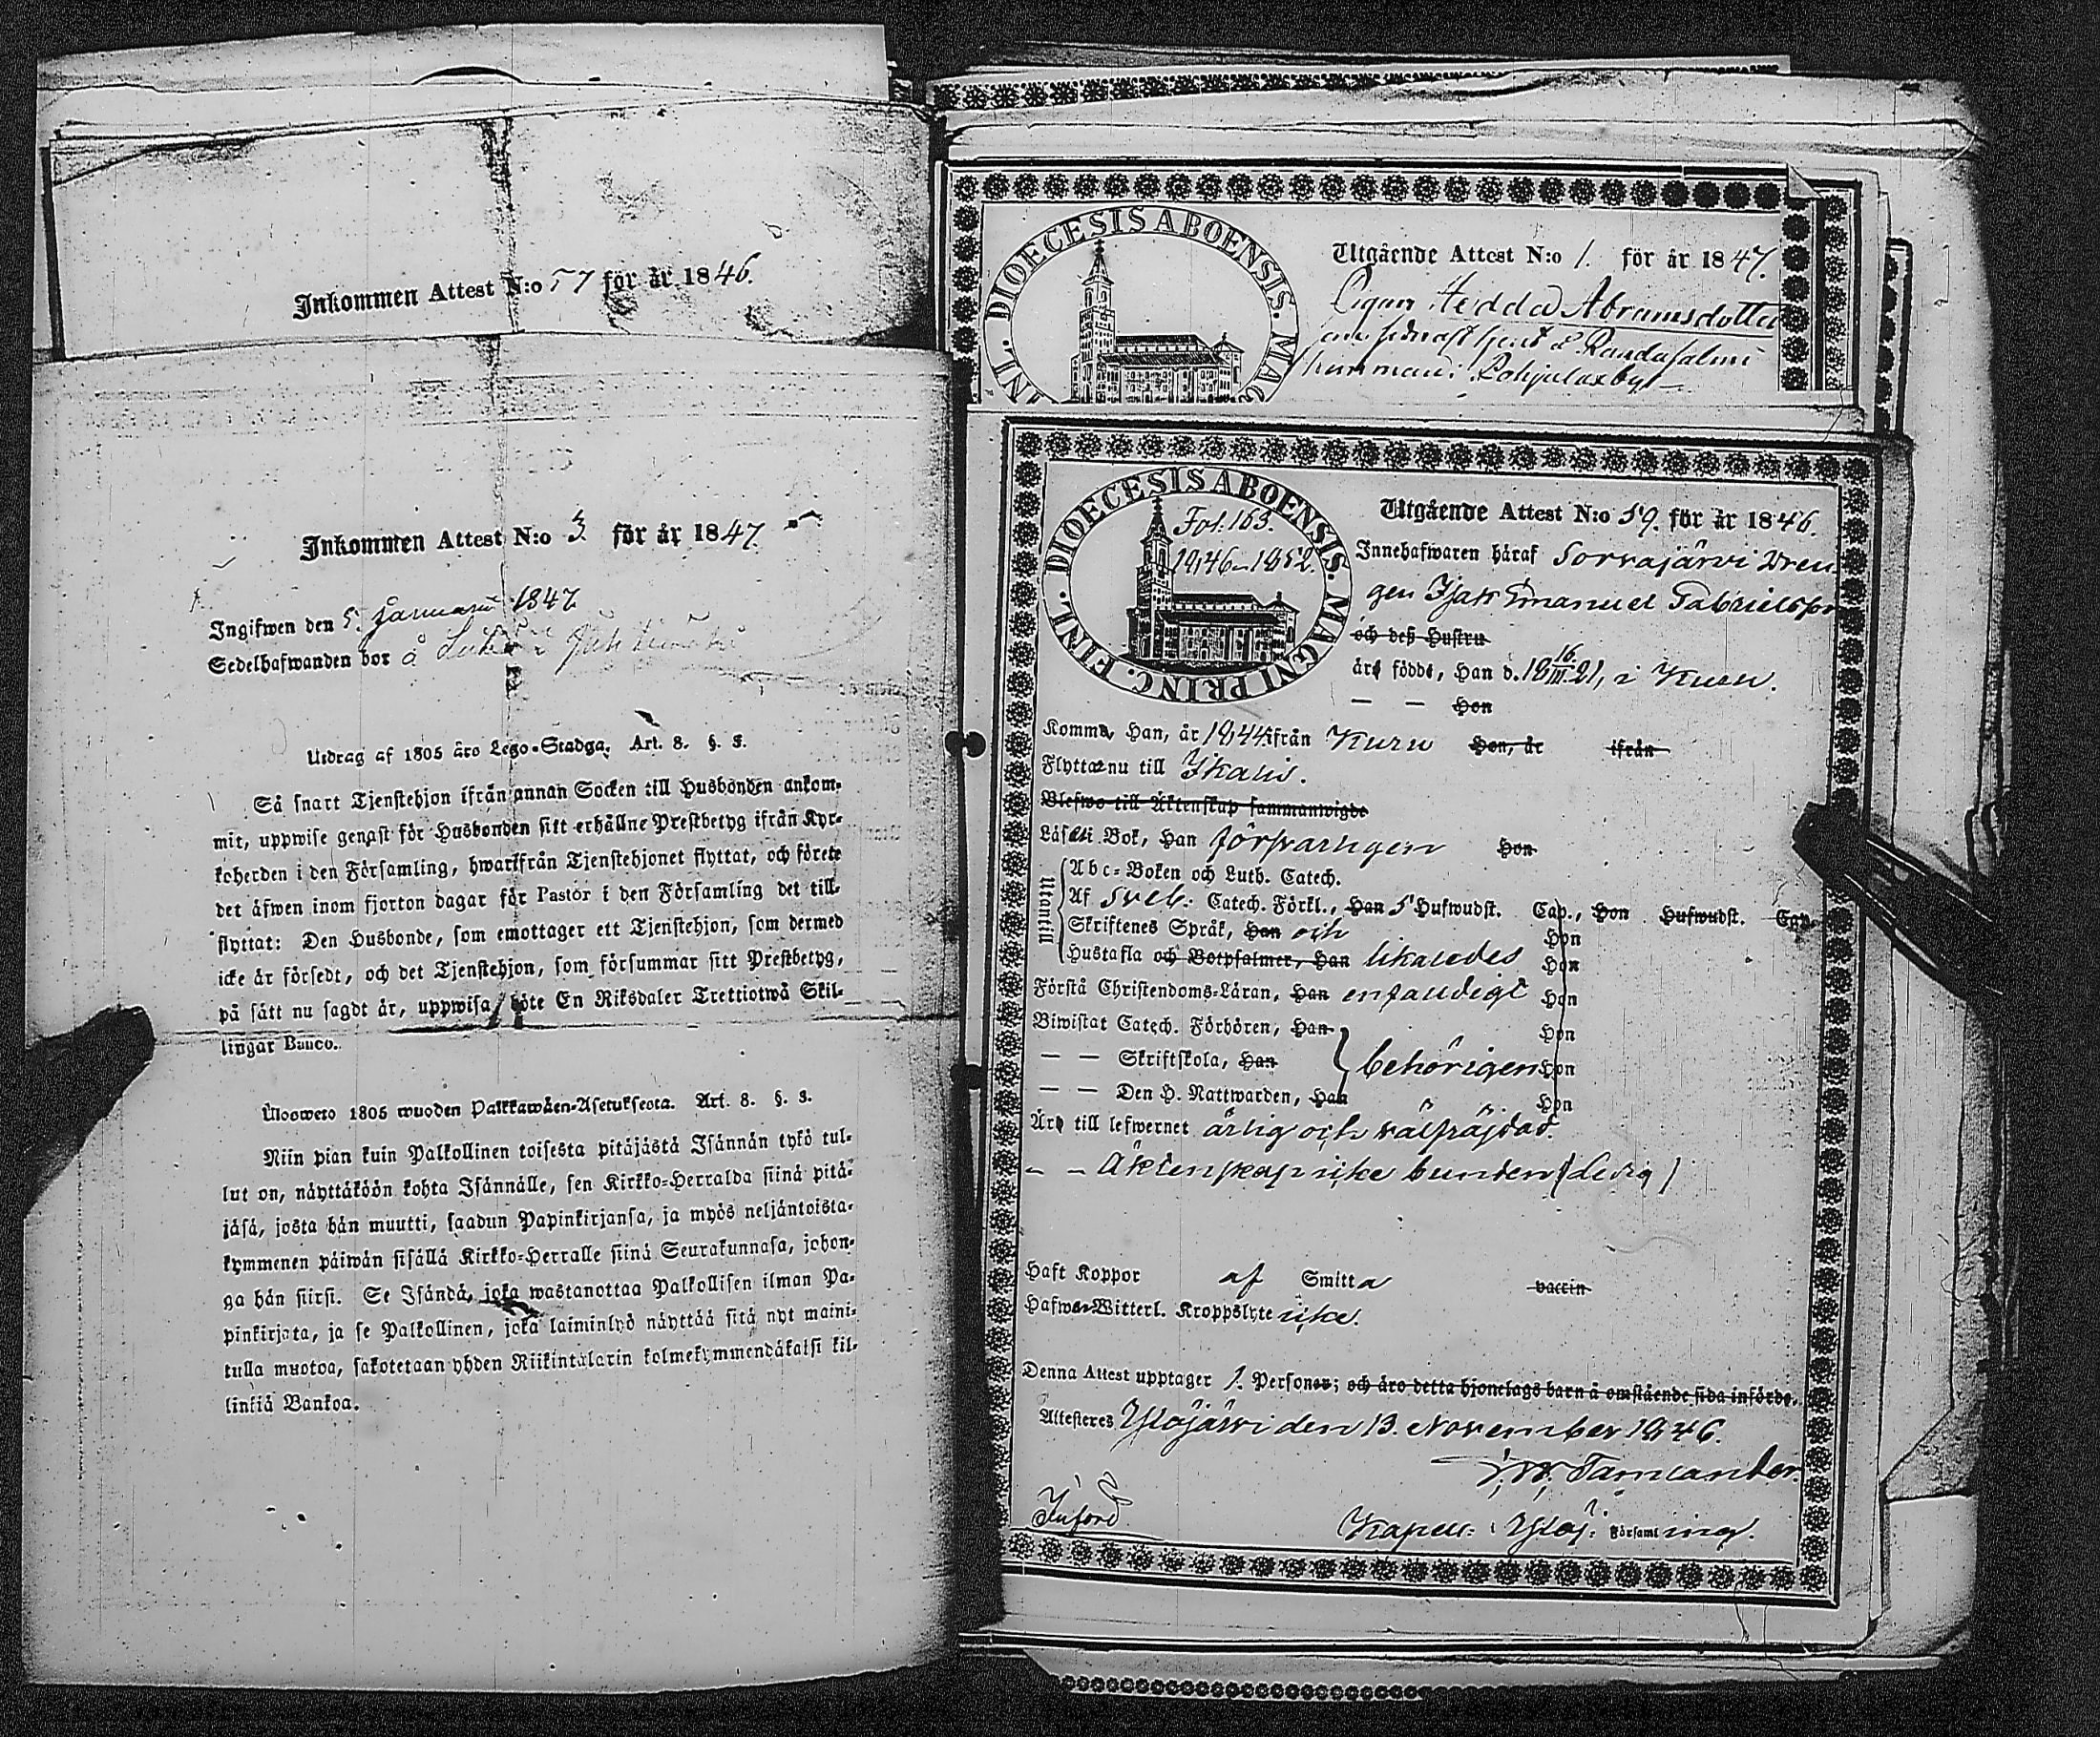 Inkommen Attest N:o 57 för år 1846.
Inkommen Attest N:o 3 för år 1847.
Ingifwen den 5. Januarii 1847
Sedelhafwanden bor å
Utdrag af 1805 års Lego-Stadga. Art. 8. §. 3.
Så snart Tjenstehjon ifrån annan Socken till Husbonden ankom-
mit, uppwise genast för Husbonden sitt erhållne Prestbetyg ifrån Kyr-
koherden i den Församling, hwarifrån Tjenstehjonet flyttat, och förete
det äfwen inom fjorton dagar för Pastor i den Församling det till-
flyttat: Den Husbonde, som emottager ett Tjenstehjon, som dermed
icke är försedt, och det Tjenstehjon, som försummar sitt Prestbetyg,
på sätt nu sagdt är, uppwisa, böte En Riksdaler Trettiotwå Skil-
lingar Banco.
Ulosweto 1805 wuoden Palkkawäen-Asetuksesta. Art. 8. §. 3.
Niin pian kuin Palkollinen toisesta pitäjästä Isännän tykö tul-
lut on, näyttäköön kohta Isännälle, sen Kirkko-Herralda siinä pitä-
jäsä, josta hän muutti, saadun Papinkirjansa, ja myös neljäntoista-
kymmenen päiwän sisällä Kirkko-Herralle siinä Seurakunnasa, johon-
ga hän siirsi. Se Isändä, joka wastanottaa Palkollisen ilman Pa-
pinkirjata, ja se Palkollinen, joka laiminlyö näyttää sitä nyt maini-
tulla muotoa, sakotetaan yhden Riikintalarin kolmekymmendäkaksi kil-
linkiä Bankoa.
DIOECESIS ABOENSIS. MAG
INL.
Utgående Attest N:o 1. för år 1847.
Pigan Hedda Abramsdotter
DIOECESIS ABOENSIS. MAGNI PRINC. FINL.
Fol. 163.
1846-1852.
Utgående Attest N:o 59. för år 1846.
Innehafwaren häraf Sorvajärvi Dren
gen Isak Emanuel Gabrielsson
och deß Hustru
äro födde, Han d. 18 16/III 21, i Kuru.
— — Hon
Komma, Han, år 1844 ifrån Kuru Hon, år ifrån
Flyttar nu till Ikalis.
Blefwo till Äktenskap sammanwigde
Läser i Bok, Han försvarligen Hon
Utantill
Abc-Boken och Luth. Catech.
Af Sveb: Catech. Förkl., Han 5 Hufwudst. Cap., Hon Hufwudst. Cap.
Skriftenes Språk, Han och Hon
Hustafla och Botpsalmer, Han likaledes Hon
Förstå Christendoms-Läran, Han enfaldigt Hon
Biwistat Catech. Förhören, Han Hon
— — Skriftskola, Han behörigen Hon
— — Den H. Nattwarden, Han Hon
Äro till lefwernet ärlig och välfräjdad.
— — Äktenskap icke bunden (ledig)
Haft Koppor af Smitta vaccin
Hafwer Witterl. Kroppslyte icke.
Denna Attest upptager 1. Personer; och äro detta hjonelags barn å omstående sida införde.
Attesteres Ylöjärvi den 13. November 1846.
Tamlander
Införd
Kapell: i Ylöj: Församling.